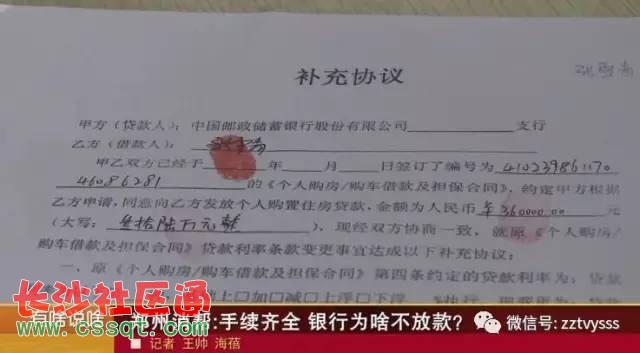 补充协议
甲方（贷款人）：中国邮政储蓄银行股份有限公司 支行
乙方（借款人）：
甲乙双方已经于 年 月 日签订了编号为 410239861170
46086281 的《个人购房/购车借款及担保合同》，约定甲方根据
乙方申请，同意向乙方发放个人购置住房贷款，金额为人民币 ¥360000.00 元
（大写：叁拾陆万元整），现经双方协商一致，就原《个人购房/
购车借款及担保合同》贷款利率条款变更事宜达成以下补充协议：
一、原《个人购房/购车借款及担保合同》第四条约定的贷款利率为：贷款
上口加口减口上浮口下浮
有啥说啥
:手续齐全 银行为啥不放款？
微信号：zztvysss
记者 王帅 海蓓
长沙社区通
www.cssqt.com